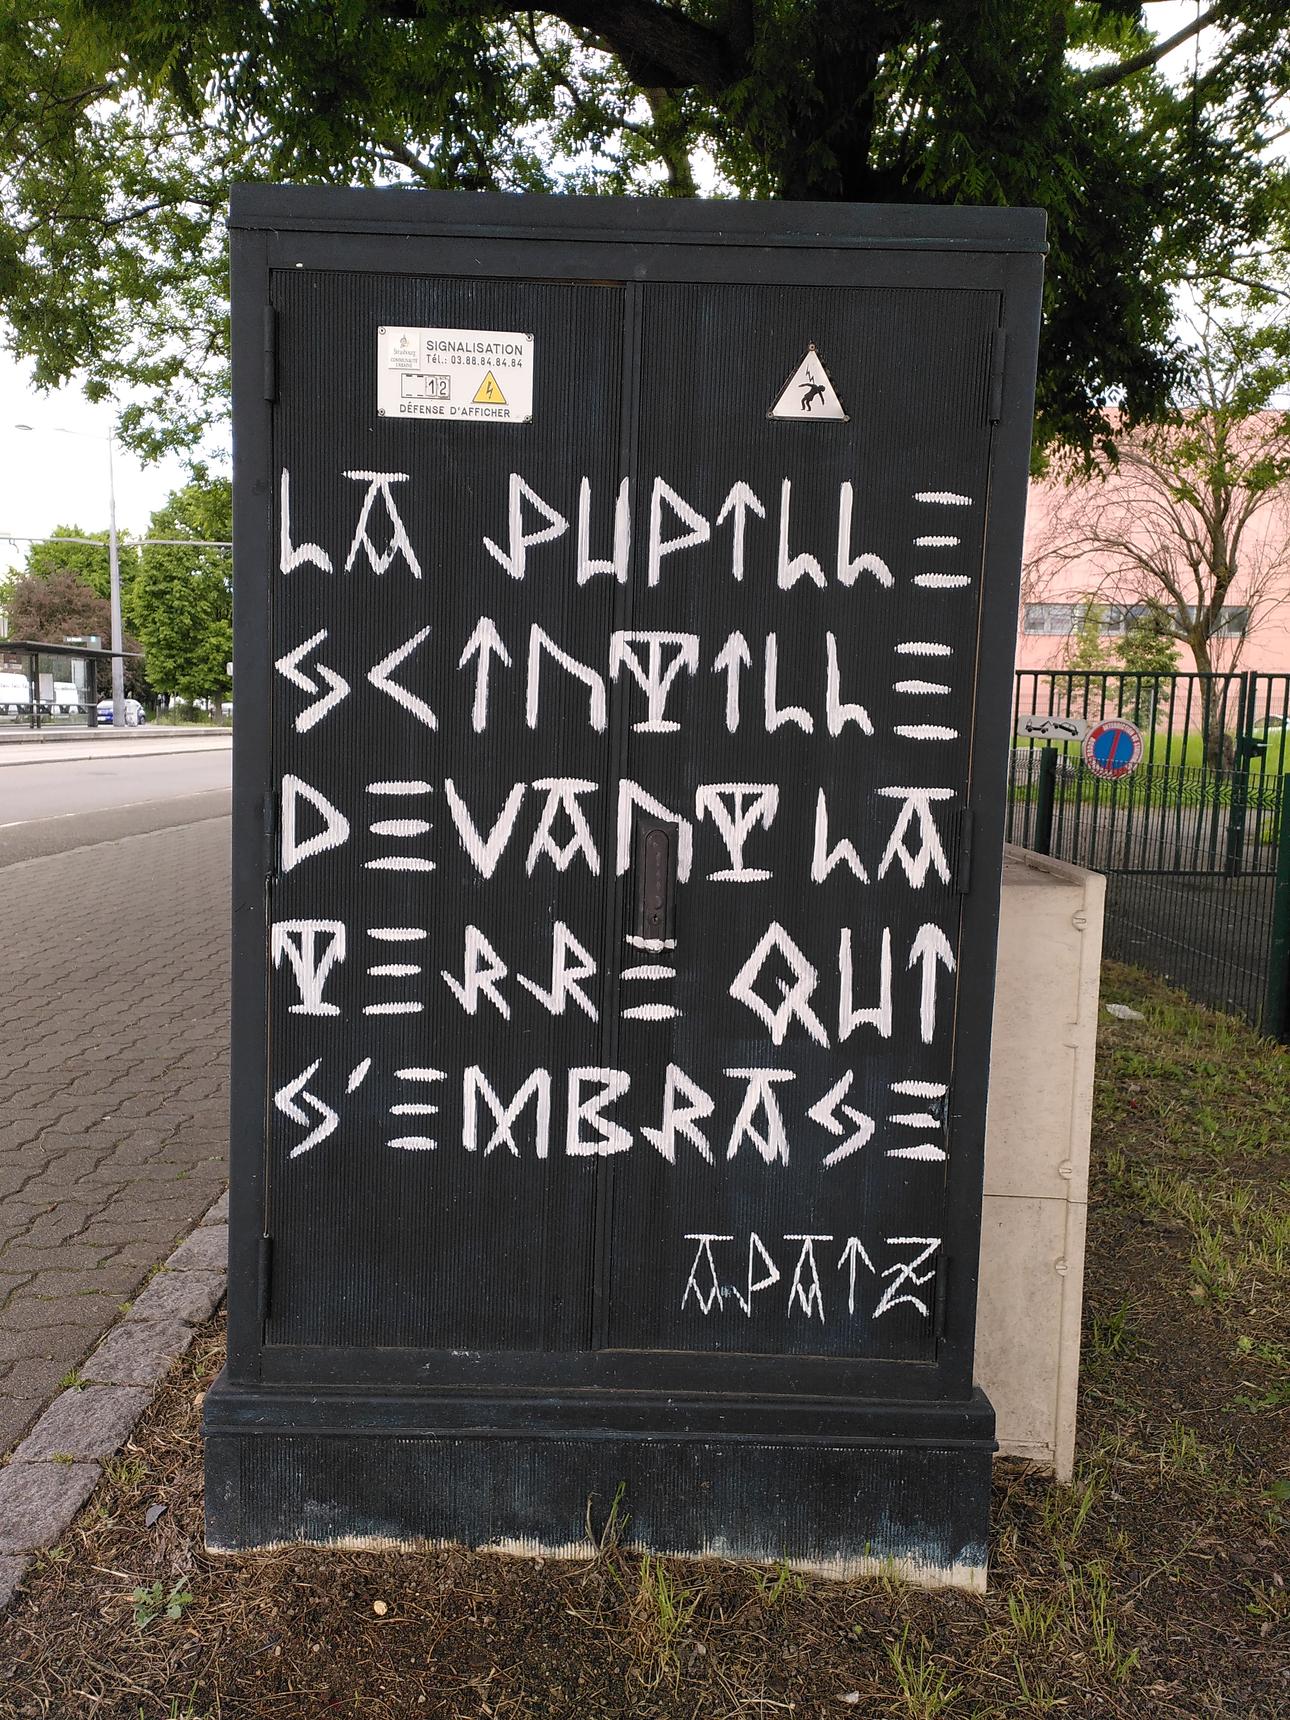 Strasbourg
COMMUNAUTÉ URBAINE
SIGNALISATION
Tél.: 03.88.84.84.84
12
DÉFENSE D'AFFICHER
LA PUPILLE
SCINTILLE
DEVANT LA
TERRE QUI
S'EMBRASE
APAIZ